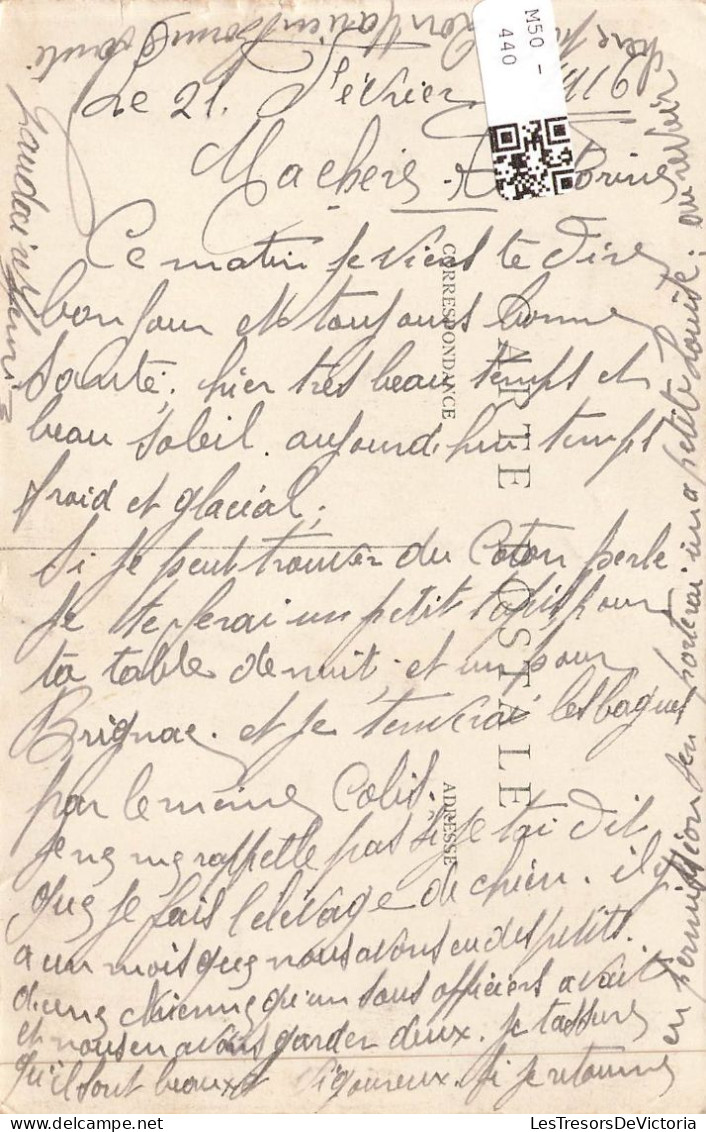 Le 21. Février 1916
Ma chère
Ce matin je viens te dire
bonjour et toujours bonne
Santé. hier très beau temps et
beau soleil. aujourd'hui temps
froid et glacial.
Si je peut trouver du Coton perle
Je te ferai un petit tapis pour
ta table de nuit. et un pour
Brignac. et je t'enverai les bagues
par le même Colis.
Je ne me rappelle pas si je t'ai dit
que je fais l'elévage de chien. il y
a un mois que nous avons eu des petits.
d'une chienne qu'un sous officiers avait
et nous en avons garder deux. Je t'assure
qu'il sont beaux et vigoureux. Si je retourne
en permission j'en porterai un a petite Louise. au revoir
ton
bonne Santé
Henri
CARTE POSTALE
CORRESPONDANCE
ADRESSE
M50 -
440
LesTresorsDeVictoria.com